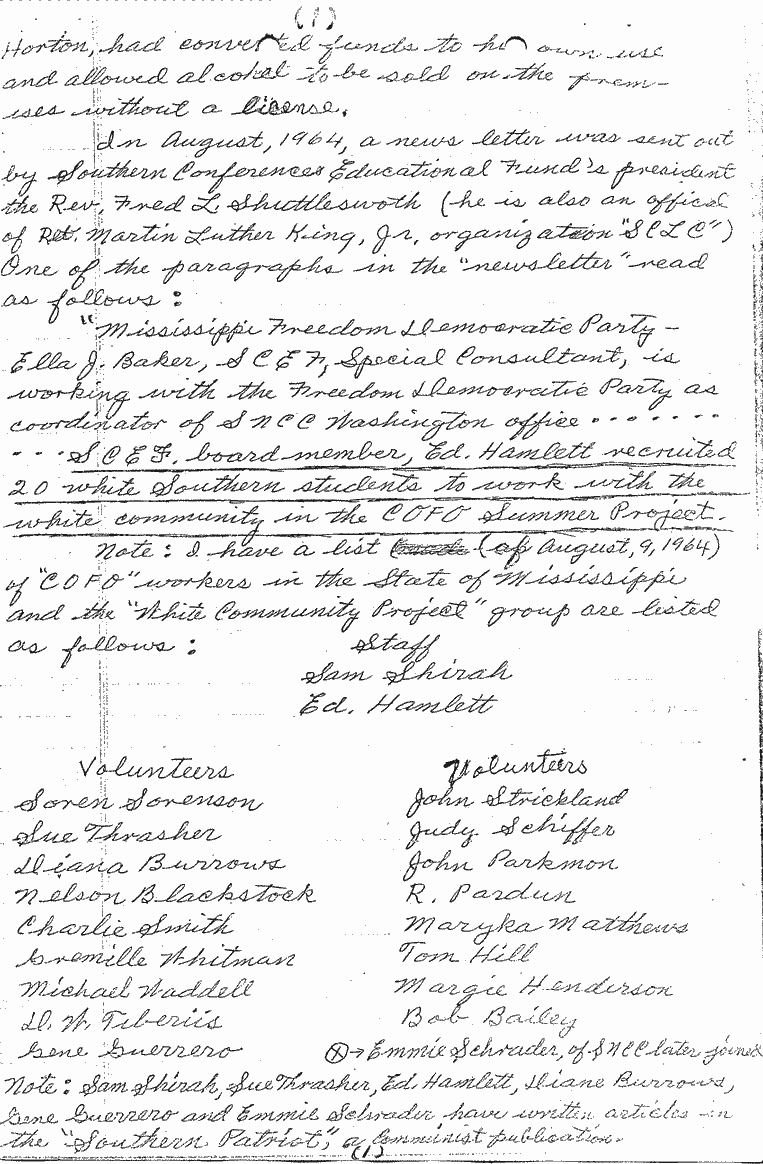 (1)
Horton, had converted funds to his own use
and allowed alcohol to be sold on the prem-
ises without a license.
In August, 1964, a news letter was sent out
by Southern Conferences Educational Fund's president
the Rev. Fred L. Shuttleswoth (he is also an offical
of Rev. Martin Luther King, Jr, organization "SCLC")
One of the paragraphs in the "newsletter" read
as follows:
"Mississippi Freedom Democratic Party-
Ella J. Baker, SCEF, Special Consultant, is
working with the Freedom Democratic Party as
coordinator of SNCC Washington office .......
...SCEF. board member, Ed. Hamlett recruited
20 white Southern students to work with the
white community in the COFO Summer Project.
Note: I have a list (of August, 9, 1964)
of "COFO" workers in the State of Mississippi
and the "White Community Project" group are listed
as follows:
Staff
Sam Shirah
Ed. Hamlett
Volunteers
Soren Sorenson
Sue Thrasher
Diana Burrows
Nelson Blackstock
Charlie Smith
Gremille Whitman
Michael Waddell
D. W. Tiberiis
Gene Guerrero
Volunteers
John Strickland
Judy Schiffer
John Parkmon
R. Pardun
Maryka Matthews
Tom Hill
Margie Henderson
Bob Bailey
ⓧ→ Emmie Schrader, of SNCC later joined
Note: Sam Shirah, Sue Thrasher, Ed. Hamlett, Diane Burrows,
Gene Guerrero and Emmie Schrader have written articles in
the "Southern Patriot", a Communist publication.
(1)